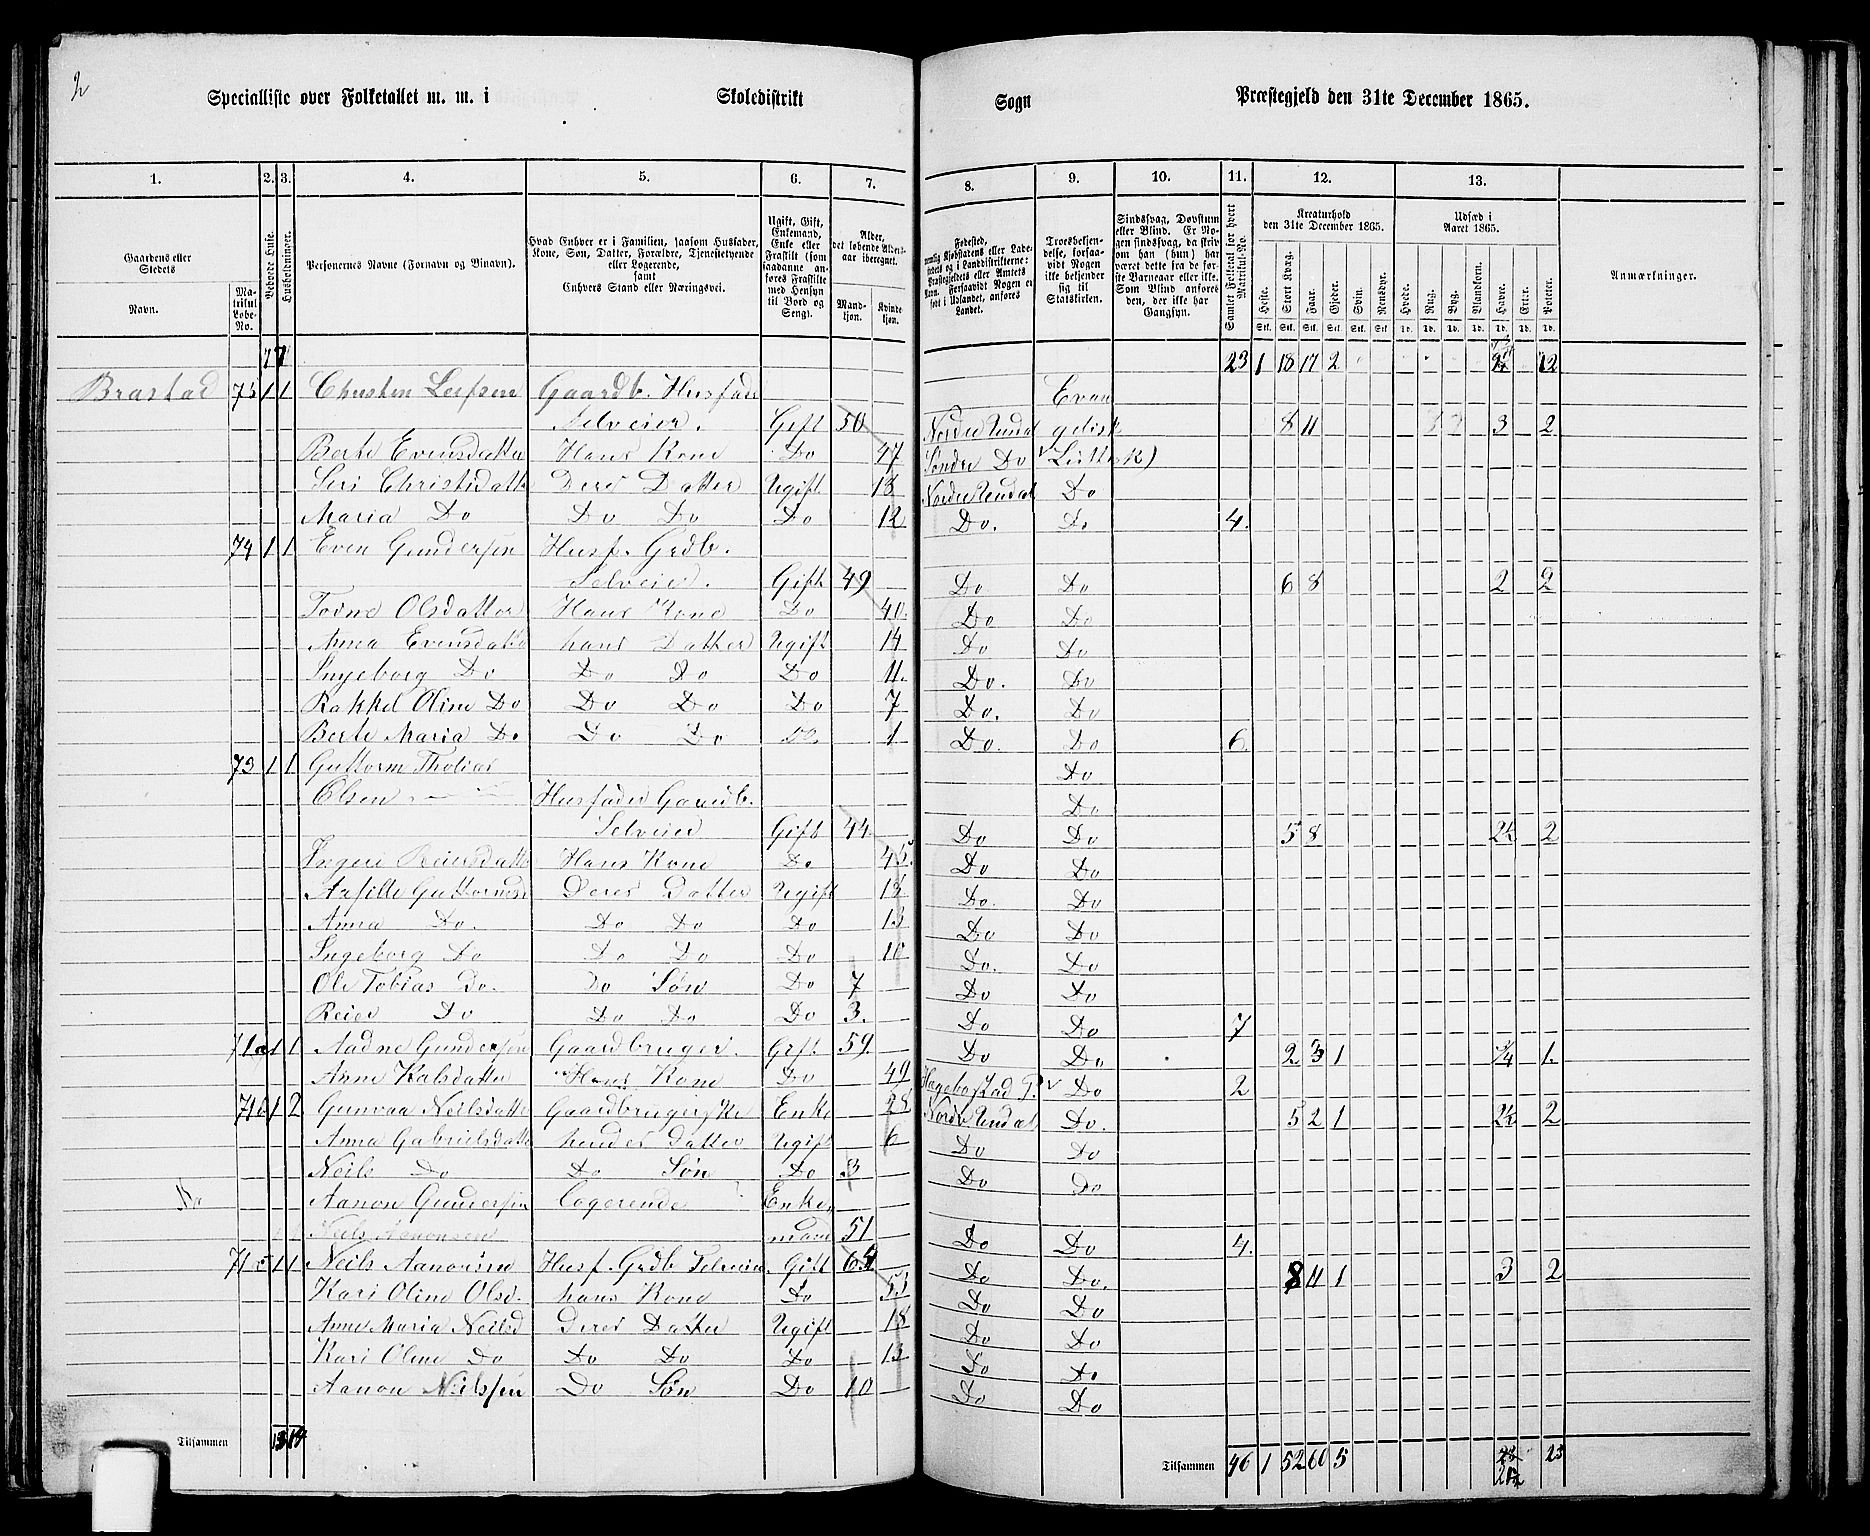 2
Specialliste over Folketallet m. m. i Skoledistrikt Sogn Præstegjeld den 31te December 1865.
1. 2. 3. 4. 5. 6. 7. 8. 9. 10. 11. 12. 13.
Gaardens eller Stedets
Navn.
Matrikul Løbe-No.
Beboede Huse.
Husholdninger.
Personernes Navne (Fornavn og Vinavn).
Hvad Enhver er i Familien, saasom Husfader, Kone, Søn, Datter, Forældre, Tjenestetyende eller Logerende, samt Enhvers Stand eller Næringsvei.
Ugift, Gift, Enkemand, Enke eller Fraskilt (som saadanne anføres Fraskilte med Hensyn til Bord og Seng).
Alder, det løbende Aldersaar iberegnet.
Mandkjøn. Kvindekjøn.
Fødested,
Troesbekjendelse, forsaavidt Nogen ikke bekjender sig til Statskirken.
Sindssvag, Døvstum eller Blind. Er Nogen sindssvag, da skrives om han (hun) har været dette fra de første Barneaar eller ikke. Som Blind anføres den, der ikke har Gangsyn.
Samlet Folketal for hvert Matrikul-No.
Kreaturhold den 31te December 1865.
Heste. Stort Kvæg. Faar. Gjeder. Svin. Rensdyr.
Udsæd i Aaret 1865.
Hvede. Rug. Byg. Blandkorn. Havre. Erter. Poteter.
Anmærkninger.
7 7 23 1 18 17 2 12
Brastad 75 1 1 Christen Leifsen Gaardb. Husfader Evan
Selveier. Gift 50 Nordre Undal gelisk 8 11 3 2
Berte Evensdatter Hans Kone Do 47 Søndre Do Luthersk)
Siri Christsdatter Deres Datter Ugift 18 Nordre Undal Do
Maria Do Do Do Do 12 Do. Do 4.
74 1 1 Even Gundersen Husf. Grdb.
Selveier. Gift 49 Do Do 6 8 2 2
Torine Olsdatter Hans Kone Do 40. Do Do
Anna Evensdatter hans Datter Ugift 14 Do Do
Ingeborg Do Do Do Do 11. Do. Do
Rakkel Oline Do Do Do Do 7 Do. Do
Berte Maria Do. Do Do Do. 1 Do. Do 6
73 1 1 Guttorm Thobias Do
Olsen Husfader Gaardb. Do
Selveier Gift 44. Do Do 5 8 2½ 2
Ingeri Reiersdatter Hans Kone Do 45. Do Do
Aasille Guttormsd Deres Datter Ugift 15 Do. Do
Anna Do. Do Do Do 13 Do Do
Ingeborg Do Do Do Do 10 Do. Do
Ole Tobias Do. Do Søn Do 7 Do Do
Reier Do Do Do Do 3. Do Do 7
71a 1 1 Aadne Gundersen Gaardbruger. Gift 59. Do Do. 2 3 1 ¾ 1.
Anne Kalsdatter Hans Kone Do 49 Hægebostad P. Do 2
71b 1 2 Gunvaa Neilsdatter Gaardbrugerske Enke 28 Nordre Undal Do. 5 2 1 2½ 2
Anna Gabrielsdatter hendes Datter Ugift 6 Do Do
Neils Do Do Søn Do 3 Do Do
Do Aanon Gundersen Logerende Enke
Neils Aanonsen mand 51 Do Do 4.
71c 1 1 Neils Aanonsen Husf. Grdb Selveier. Gift 64 Do Do. 8 11 1 3 2
Kari Oline Olsd. hans Kone Do 53 Do Do
Anne Maria Neilsd Deres Datter Ugift 18 Do Do
Kari Oline Do Do Do Do 13 Do Do
Aanon Neilssen Do Søn Do 10 Do Do
Tilsammen 13 14 Tilsammen 46 1 52 60 5 23